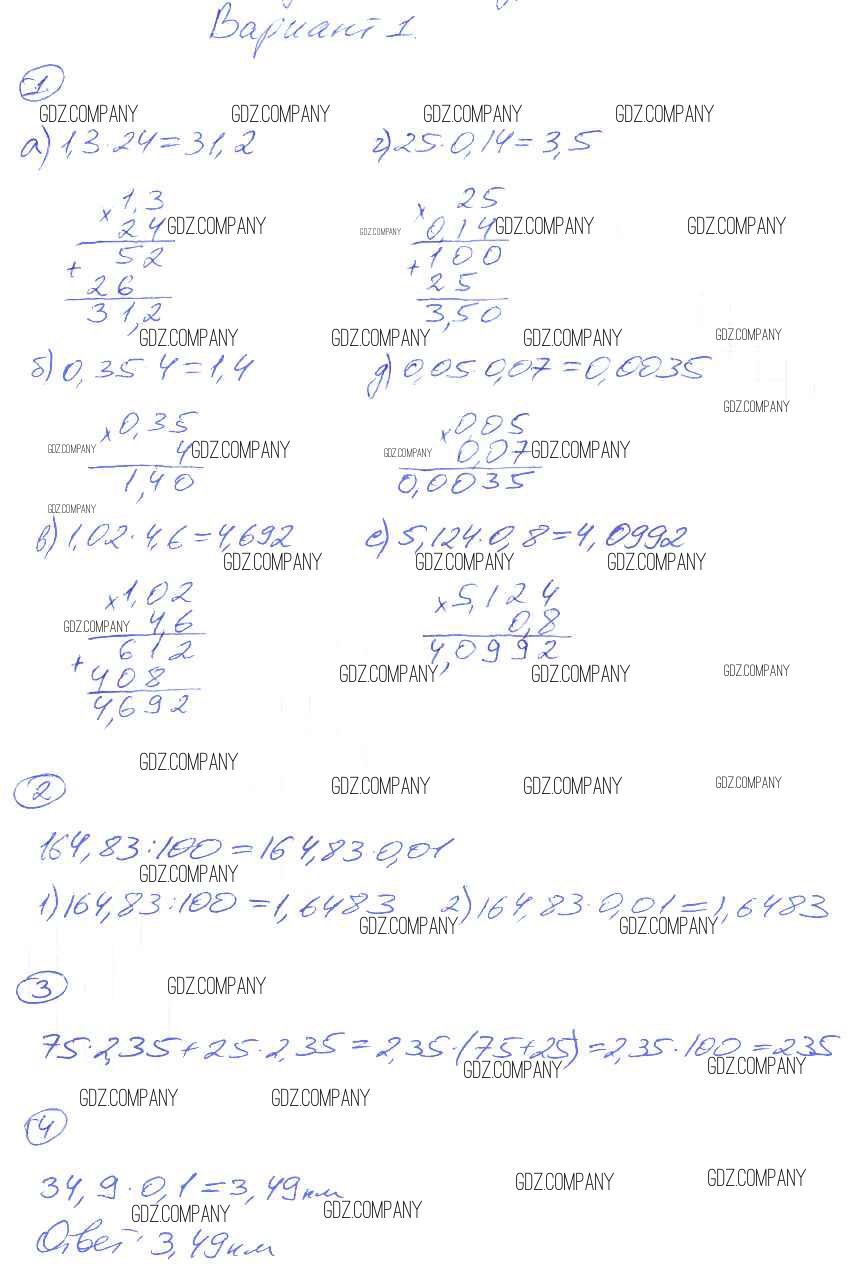 Вариант 1.
1
GDZ.COMPANY GDZ.COMPANY GDZ.COMPANY GDZ.COMPANY
а) 1,3·24=31,2 г) 25·0,14=3,5
× 1,3 × 25
24 GDZ.COMPANY GDZ.COMPANY 0,14 GDZ.COMPANY GDZ.COMPANY
52 100
+ +
26 25
31,2 3,50
GDZ.COMPANY GDZ.COMPANY GDZ.COMPANY GDZ.COMPANY
б) 0,35·4=1,4 д) 0,05 0,07=0,0035
GDZ.COMPANY
× 0,35 × 0,05
GDZ.COMPANY 4 GDZ.COMPANY GDZ.COMPANY 0,07 GDZ.COMPANY
1,40 0,0035
GDZ.COMPANY
в) 1,02·4,6=4,692 е) 5,124·0,8=4,0992
GDZ.COMPANY GDZ.COMPANY GDZ.COMPANY
× 1,02 × 5,124
GDZ.COMPANY 4,6 0,8
612 4,0992
+
408 GDZ.COMPANY GDZ.COMPANY GDZ.COMPANY
4,692
GDZ.COMPANY
2 GDZ.COMPANY GDZ.COMPANY GDZ.COMPANY
164,83:100=164,83·0,01
GDZ.COMPANY
1) 164,83:100=1,6483 2) 164,83·0,01=1,6483
GDZ.COMPANY GDZ.COMPANY
3 GDZ.COMPANY
75·2,35+25·2,35=2,35·(75+25)=2,35·100=235
GDZ.COMPANY GDZ.COMPANY
GDZ.COMPANY GDZ.COMPANY
4
34,9·0,1=3,49км GDZ.COMPANY GDZ.COMPANY
GDZ.COMPANY GDZ.COMPANY
Ответ: 3,49км